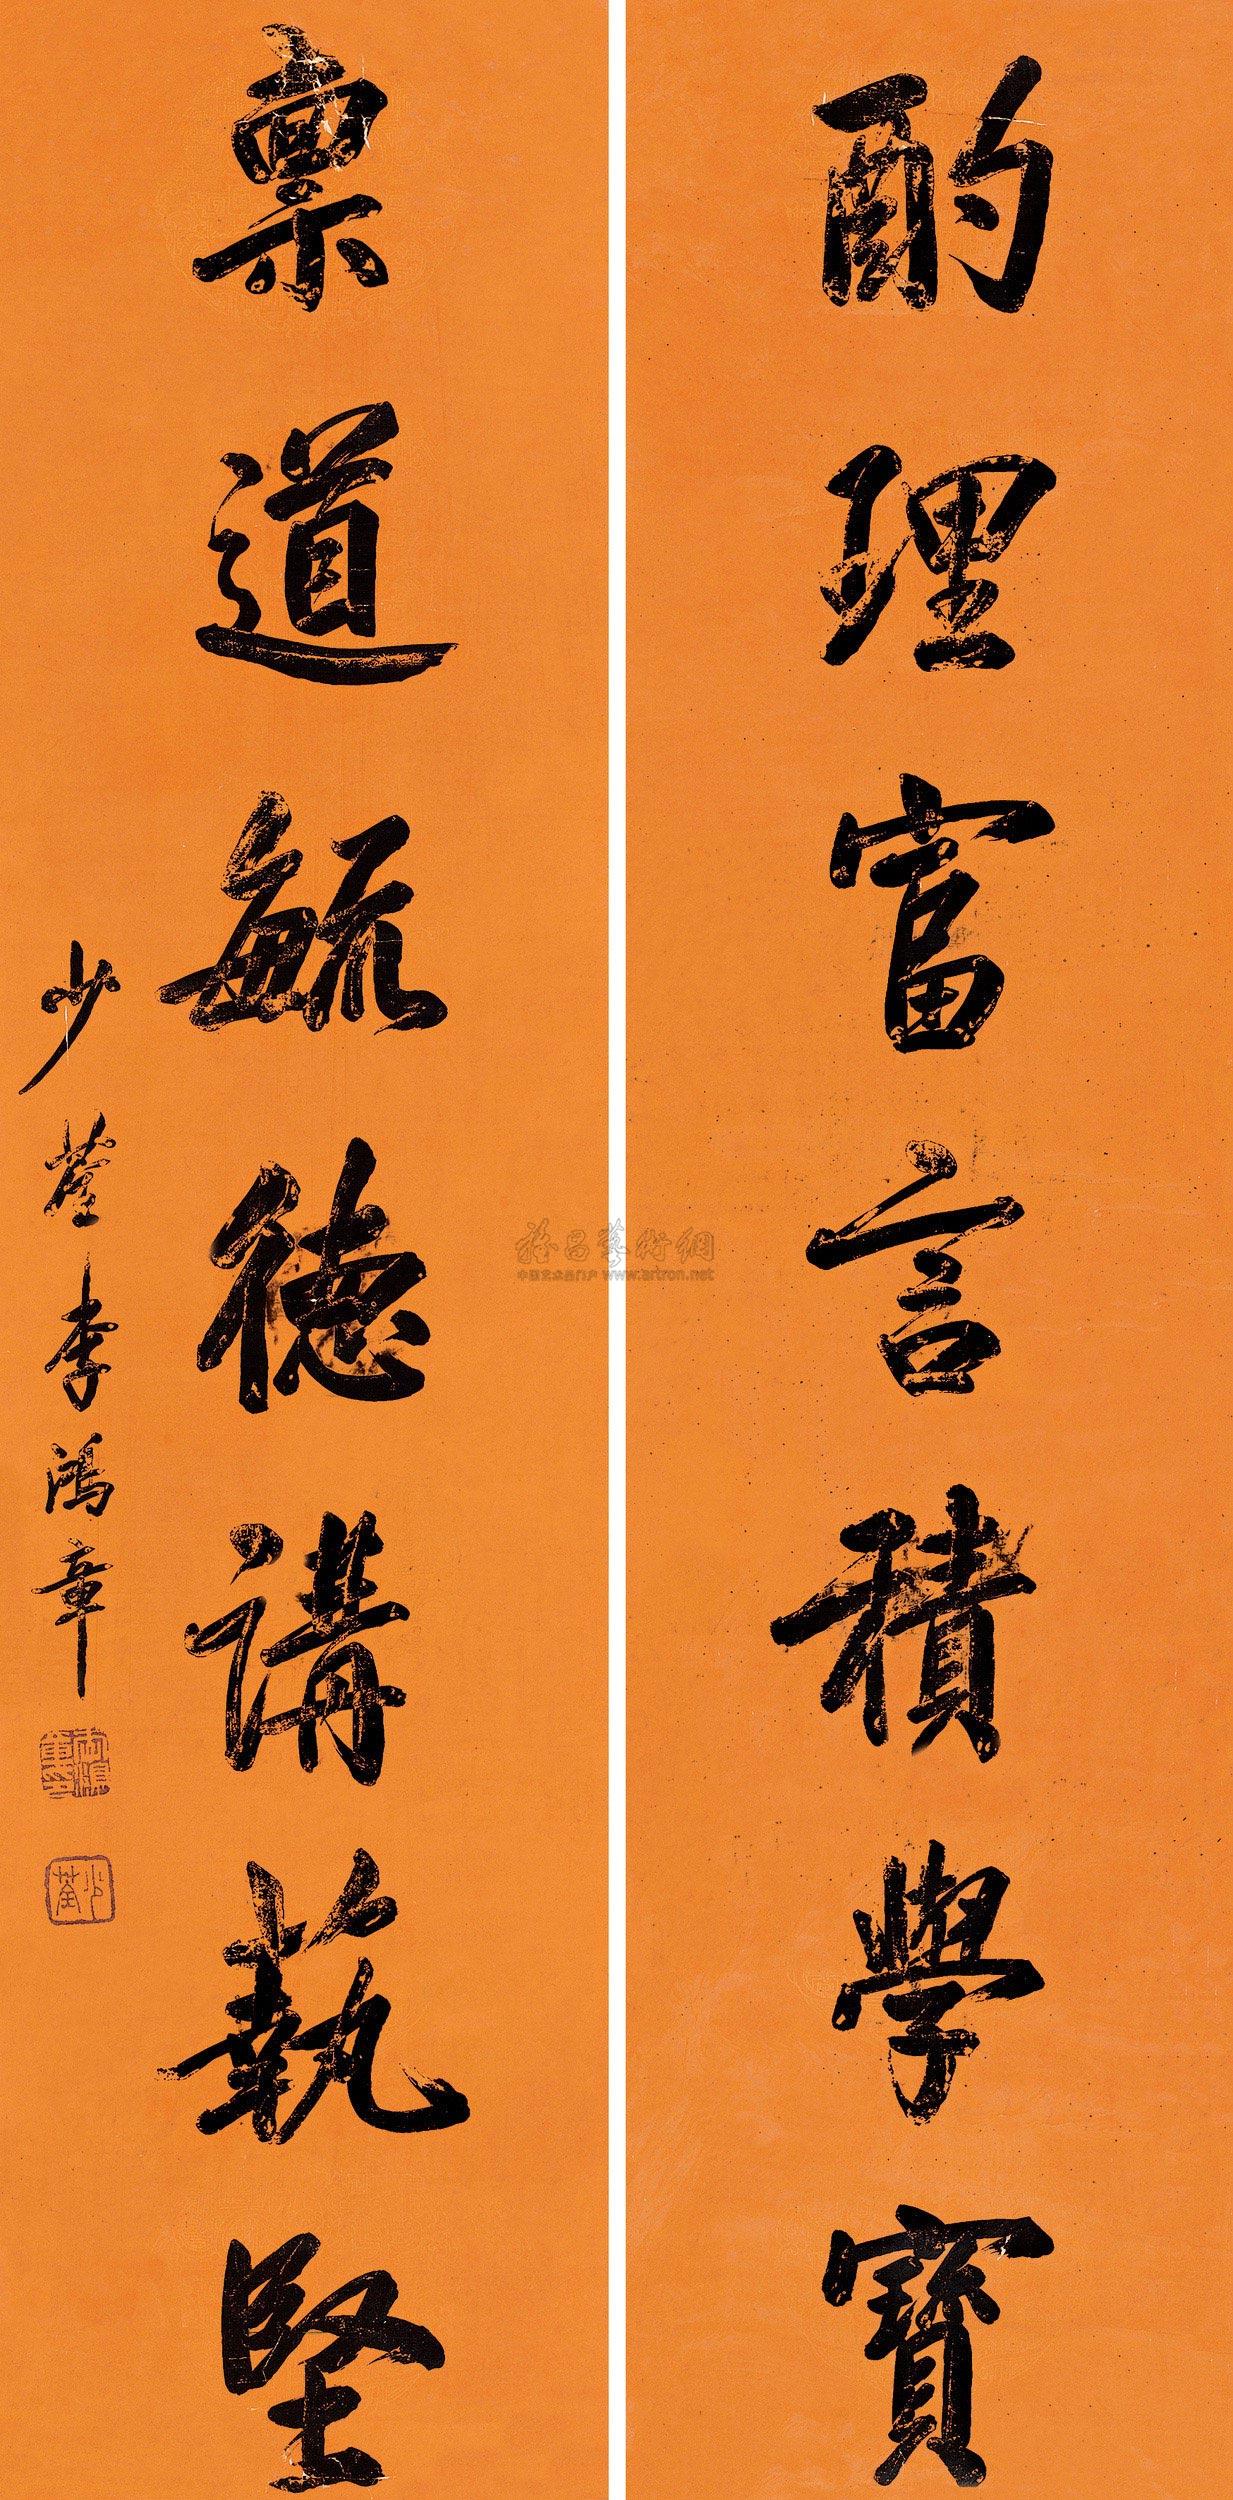 酌理富言積學寶
稟道毓德講藝堅
少荃李鴻章
少荃
雅昌藝術網
中国艺术品门户 www.artron.net